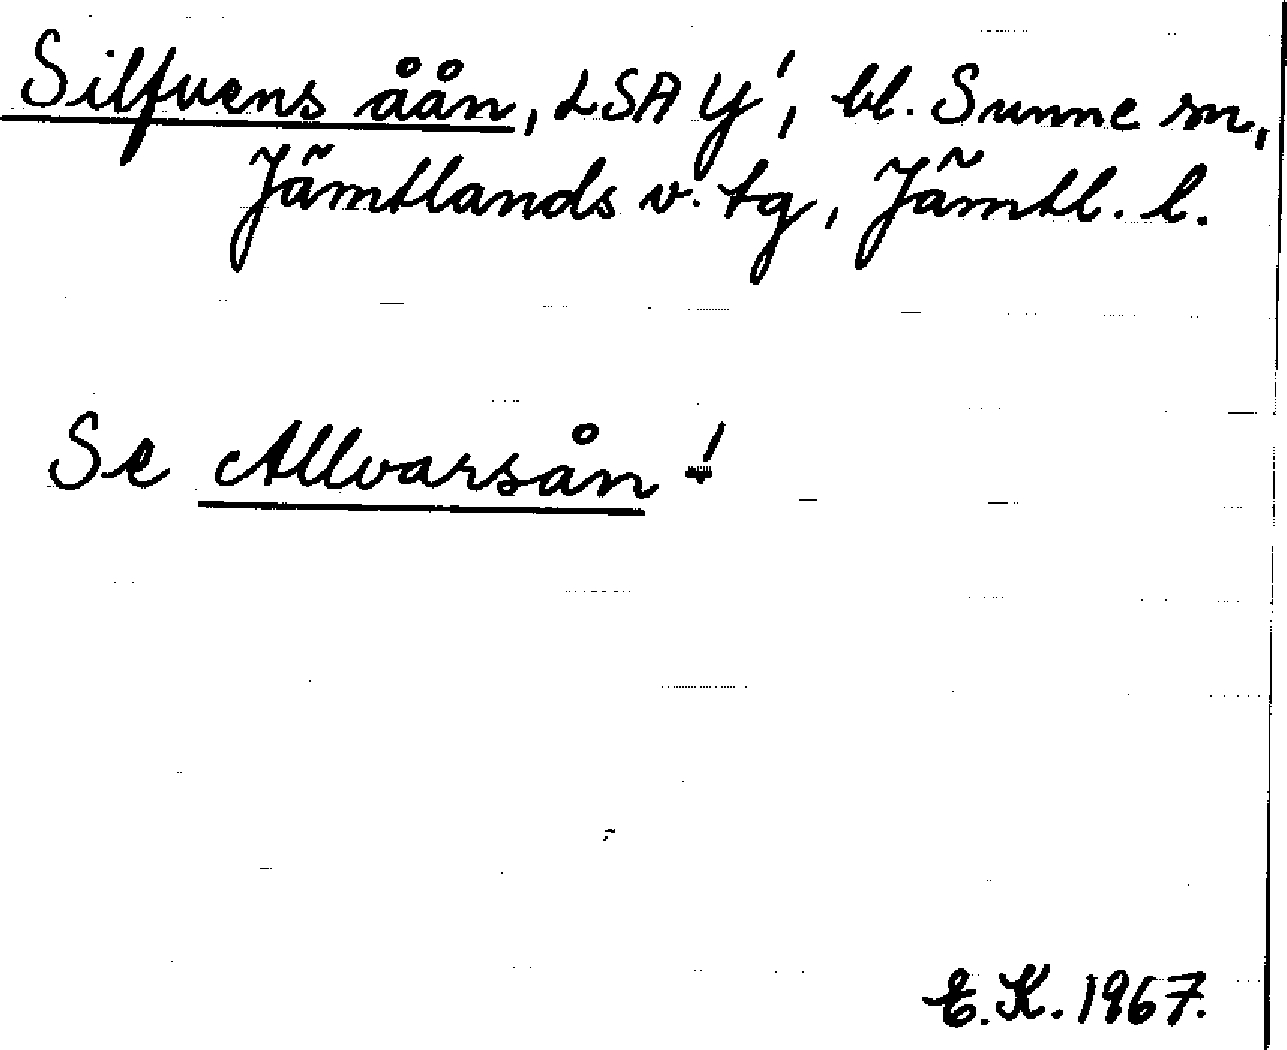 Silfuens åån, LSA Y', bl. Sunne sn,
Jämtlands v. tg, Jämtl. l.
Se Allvarsån!
E.K. 1967.